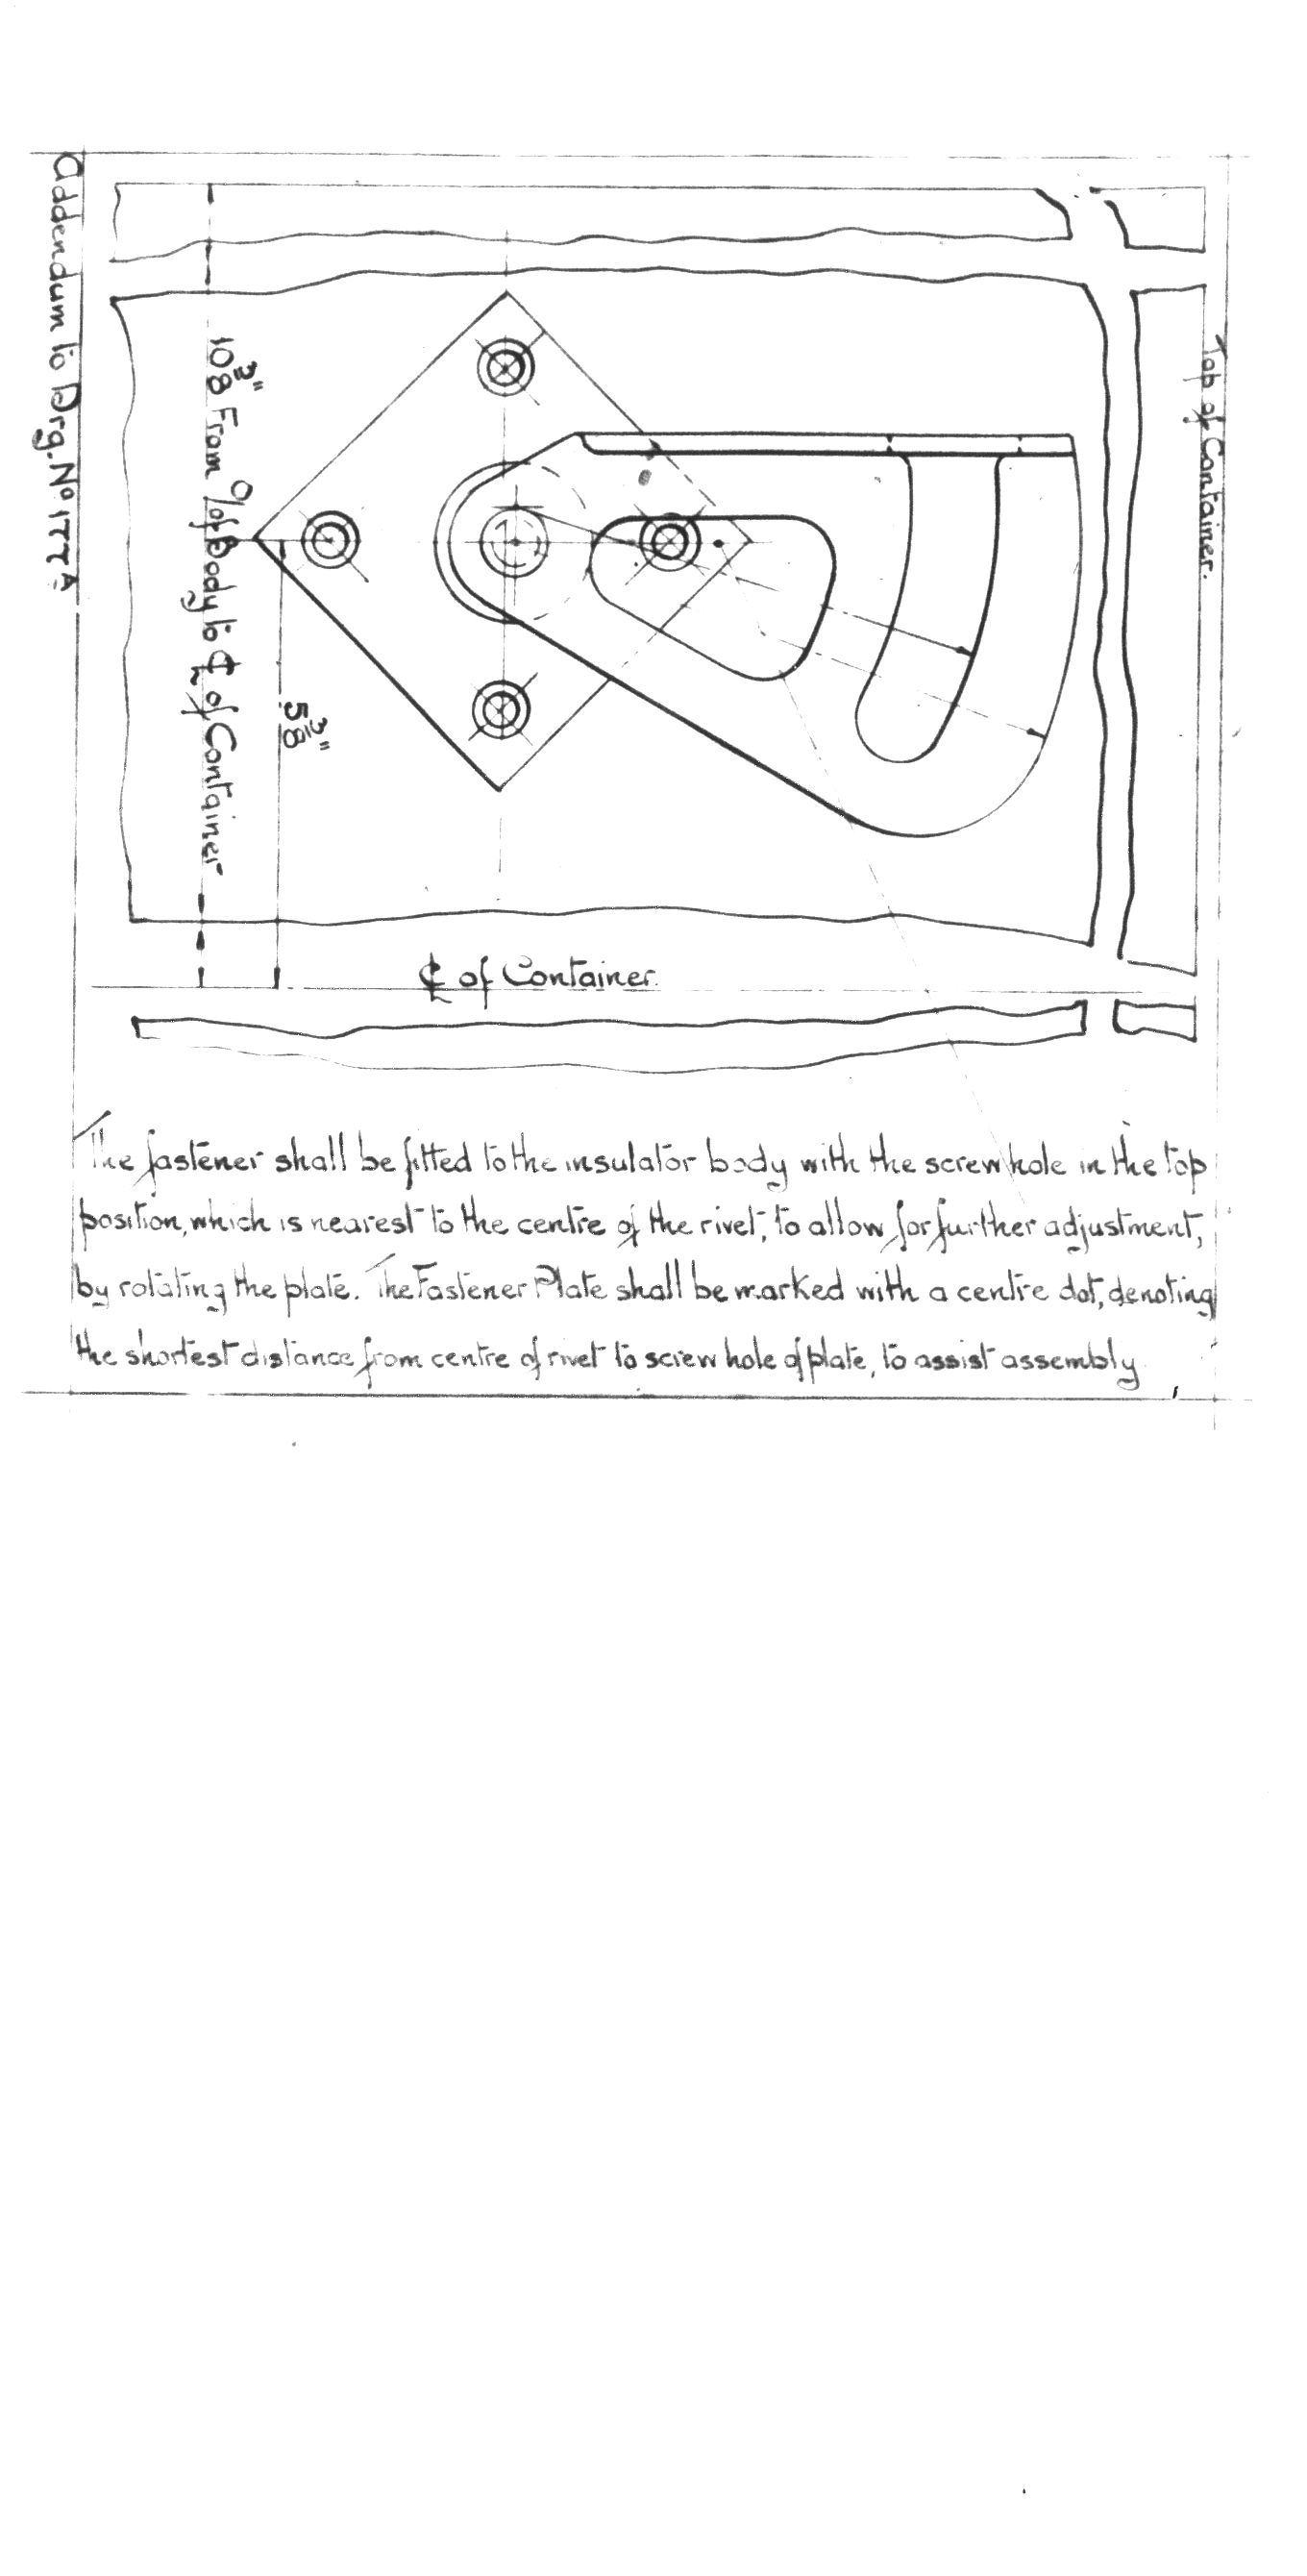 Addendum to Drg. Nº 177 A
Top of Container.
10 3/8" From O/S of Body to ℄ of Container
5 3/8"
℄ of Container.
The fastener shall be fitted to the insulator body with the screw hole in the top
position, which is nearest to the centre of the rivet, to allow for further adjustment,
by rotating the plate. The Fastener Plate shall be marked with a centre dot, denoting
the shortest distance from centre of rivet to screw hole of plate, to assist assembly